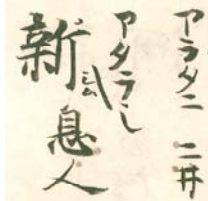 アラタニ 二井
アタラし
新 息人